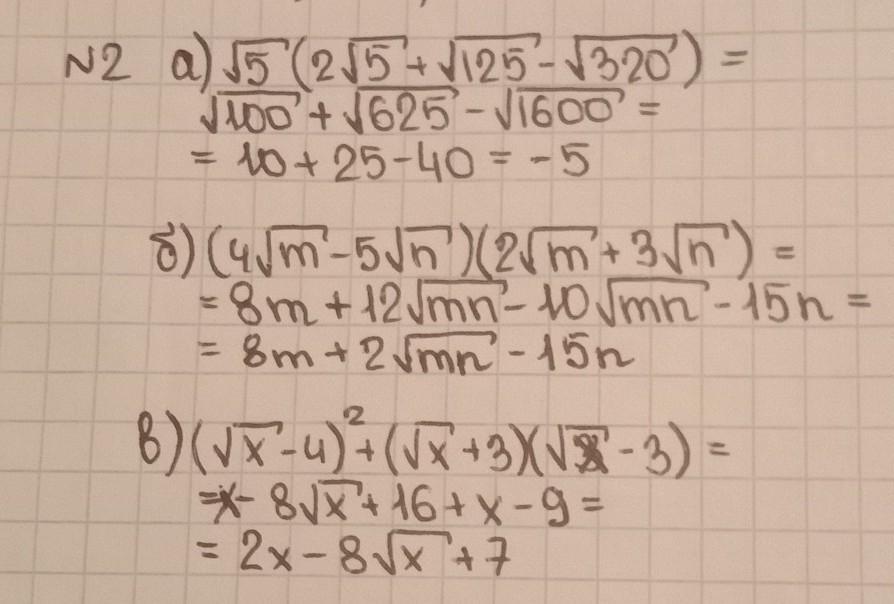 N2 а) √5 (2√5 + √125 - √320) =
√100 + √625 - √1600 =
= 10 + 25 - 40 = -5
б) (4√m - 5√n)(2√m + 3√n) =
= 8m + 12√mn - 10√mn - 15n =
= 8m + 2√mn - 15n
в) (√x - 4)² + (√x + 3)(√x - 3) =
= x - 8√x + 16 + x - 9 =
= 2x - 8√x + 7